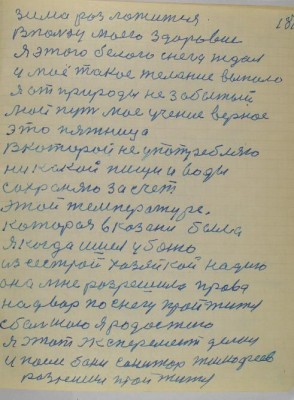 зима разложится. 181
в пользу моего здоровие
Я этого белого снега ждал
и моё такое желание выпало
Я от природы не забытый
мой путь мое учение верное
это пятница
в которой не употребляю
ни какой пищи и воды
сохраняю за счет
этой температуре.
которая в казани была
Я когда шил у
из сестрой хозяйкой надию
она мне разрешила права
на двар по снегу пройтити
с большою я радостью
Я этот эксперемент делаю
и после бани санитар
разрешил пройтити